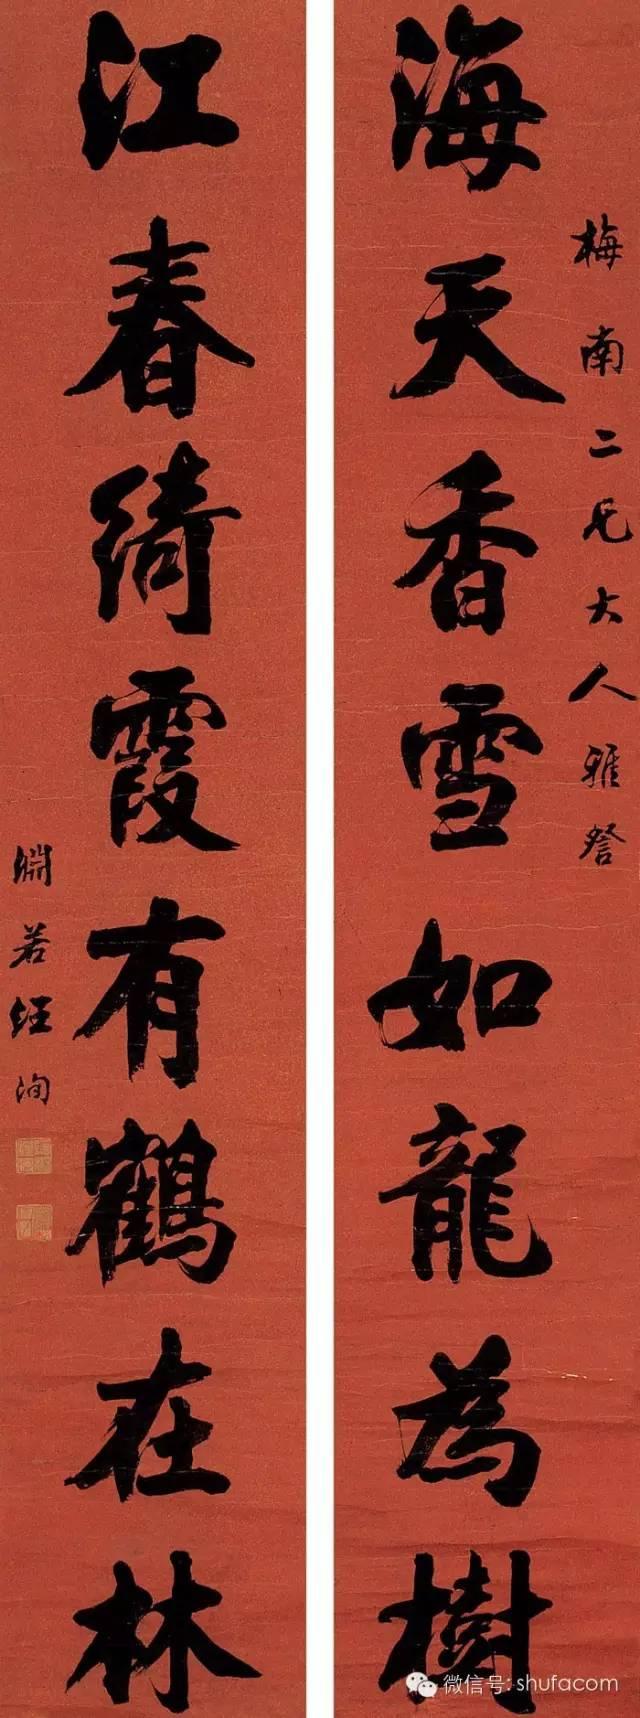 梅南二兄大人雅詧
海天香雪如龍為樹
江春綺霞有鶴在林
淵若經洵
微信号: shufacom